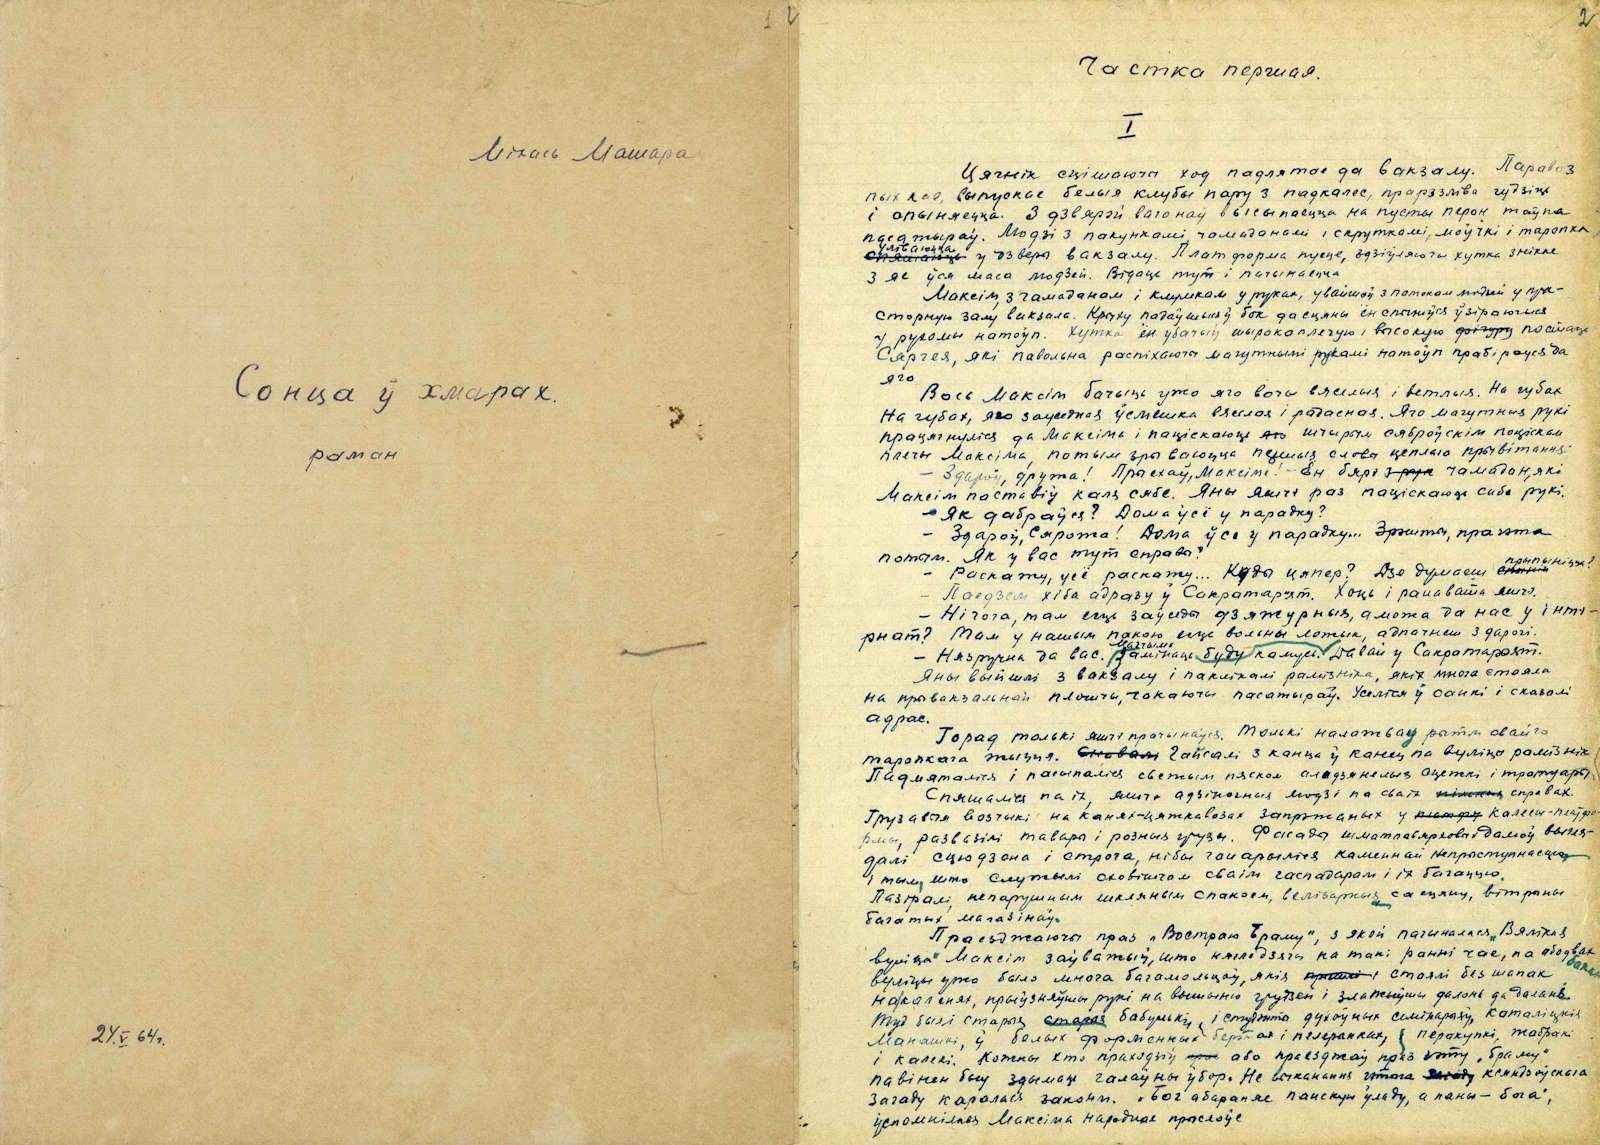 1
Міхась Машара
Сонца ў хмарах.
раман
24.V 64г.
2
Частка першая.
I
Цягнік сцішаючы ход падлятае да вакзалу. Паравоз
выпускае белыя клубы пару з падкалес, прарэзліва гудзіць
і спыняецца. З дзвярэй вагонаў высыпаецца на пусты перон таўпа
пасажыраў. Людзі з пакункамі, чамаданамі і скруткамі, моўчкі і таропка
уліваюцца
у дзверы вакзалу. Платформа пусце, здзіўляючы хутка знікае
з яе ўся маса людзей. Відаць тут і пачынаецца
Максім, з чамаданам і клумкам у руках, увайшоў з патокам людзей у пра-
сторную залу вакзала. Крыху падаўшыся ў бок да сцяны ён спыніўся ўзіраючыся
у рухомы натоўп. Хутка ён убачыў шырокаплечую і высокую фігуру постаць
Сяргея, які павольна распіхаючы магутнымі рукамі натоўп прабіраўся да
яго
Вось Максім бачыць ужо яго вочы вясёлыя і ветлыя. На губах
На губах, яго заўсёдная ўсмешка вясёлая і радасная. Яго магутныя рукі
працягнуліся да Максіма і паціскаюць яго шчырым сяброўскім поціскам
плечы Максіма, потым зрываюцца першыя словы цеплаго прывітання:
– Здароў, дружа! Прыехаў, Максіме! – Ён бярэ з рук чамадан, які
Максім паставіў каля сябе. Яны яшчэ раз паціскаюць сабе рукі.
– Як дабраўся? Дома ўсё у парадку?
– Здароў, Сярожа! Дома ўсё у парадку... Зрэшты, пра гэта
потым. Як у вас тут справы?
– Раскажу, усё раскажу... Куды цяпер? Дзе думаеш
прыпыніцца?
– Паедзем хіба адразу ў Сакратарыят. Хоць і ранавата яшчэ.
– Нічога, там ёсць заўсёды дзяжурныя, а можа да нас у інтэ-
рнат? Там у нашым пакою ёсць вольны ложык, адпачнеш з дарогі.
– Нязручна да вас. Замінаць буду камусь. Давай у Сакратарыят.
Яны выйшлі з вакзалу і паклікалі рамізніка, якіх многа стаяла
на прывакзальнай плошчы, чакаючы пасажыраў. Уселіся ў санкі і сказалі
адрас.
Горад толькі яшчэ прачынаўся. Толькі налажваў рытм свайго
таропкага жыцця. Гайсалі з канца ў канец па вуліцы рамізнікі
Падмяталіся і пасыпаліся свежым пяском аледзянелыя сцежкі і тратуары.
Спяшаліся па іх, яшчэ адзіночныя людзі па сваіх справах.
Грузавыя возчыкі на канях-цяжкавозах запрэжаных у калёсы-платфо-
рмы, развазілі тавары і розныя грузы. Фасады шматпавярховых дамоў выгля-
далі сцюдзёна і строга, нібы ганарыліся каменнай непрыступнасцю
і тым, што служылі сховішчам сваім гаспадарам і іх багаццю.
Пазіралі, непарушным шкляным спакоем, велізарныя са сцяны, вітрыны
багатых магазінаў.
Праезджаючы праз „Вострую Браму“, з якой пачыналася „Вялікая
вуліца“ Максім заўважыў, што нягледзячы на такі ранні час, па абодвух
баках
вуліцы ужо было многа багамольцаў, якія стаялі без шапак
на каленях, прыўзняўшы рукі на вышыню грудзей і злажыўшы далонь да далані.
Тут былі старыя бабулькі, і студэнты духоўных семінарыяў, каталіцкія
манашкі, ў белых форменных і пелерынках, перакупкі, жабракі
і калекі. Кожны хто праходзіў або праезджаў праз гэту „браму“
павінен быў здымаць галаўны ўбор. Не выкананне гэтага ксяндзоўскага
загаду каралася законам. „Бог абараняе панскую ўладу, а паны – бога“,
ўспомнілася Максіму народнае прыслоўе